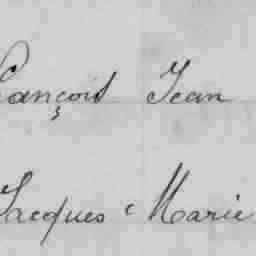 François Jean
Jacques Marie